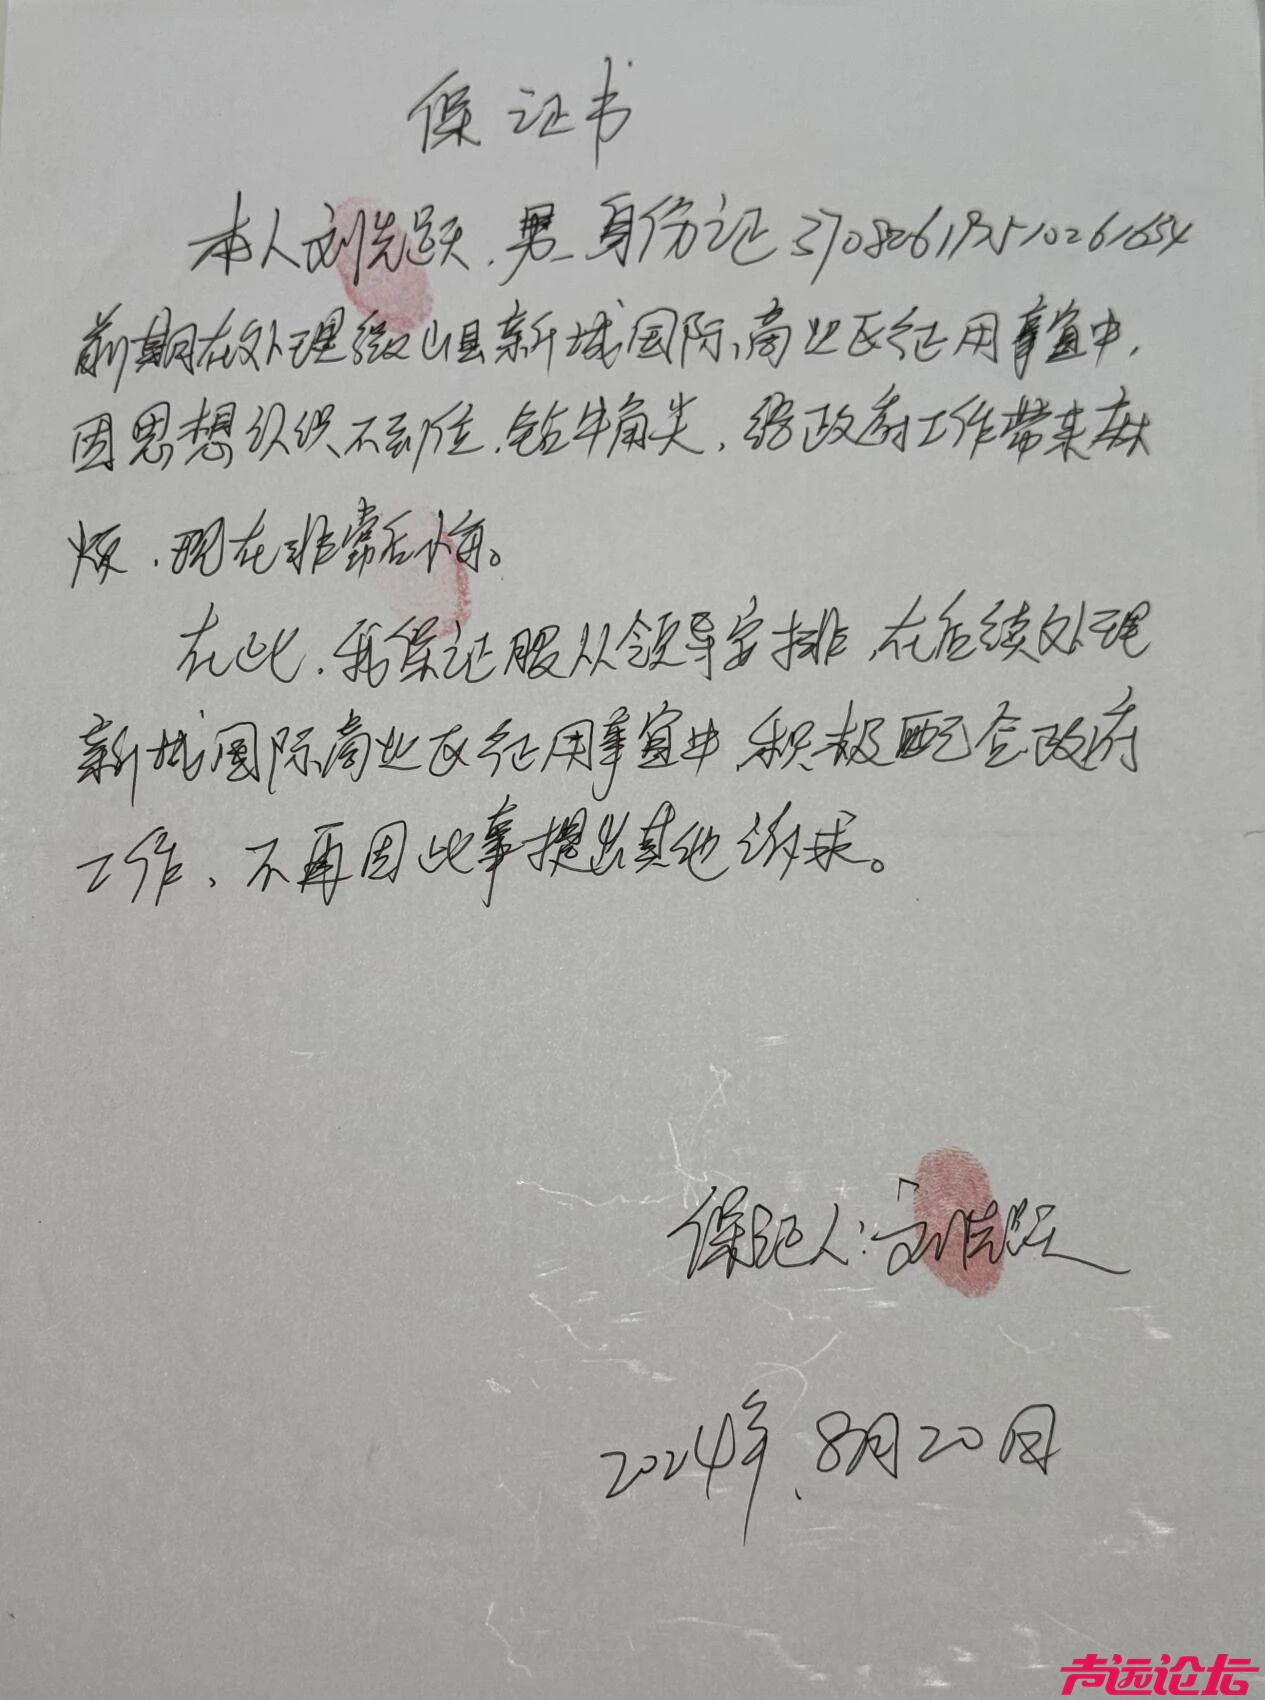 保证书
本人刘先跃，男，身份证370826195510261654
前期在处理微山县新城国际商业区征用事宜中，
因思想认识不到位，钻牛角尖，给政府工作带来麻
烦，现在非常后悔。
在此，我保证服从领导安排，在后续处理
新城国际商业区征用事宜中，积极配合政府
工作，不再因此事提出其他诉求。
保证人：刘先跃
2024年8月20日
声远论坛